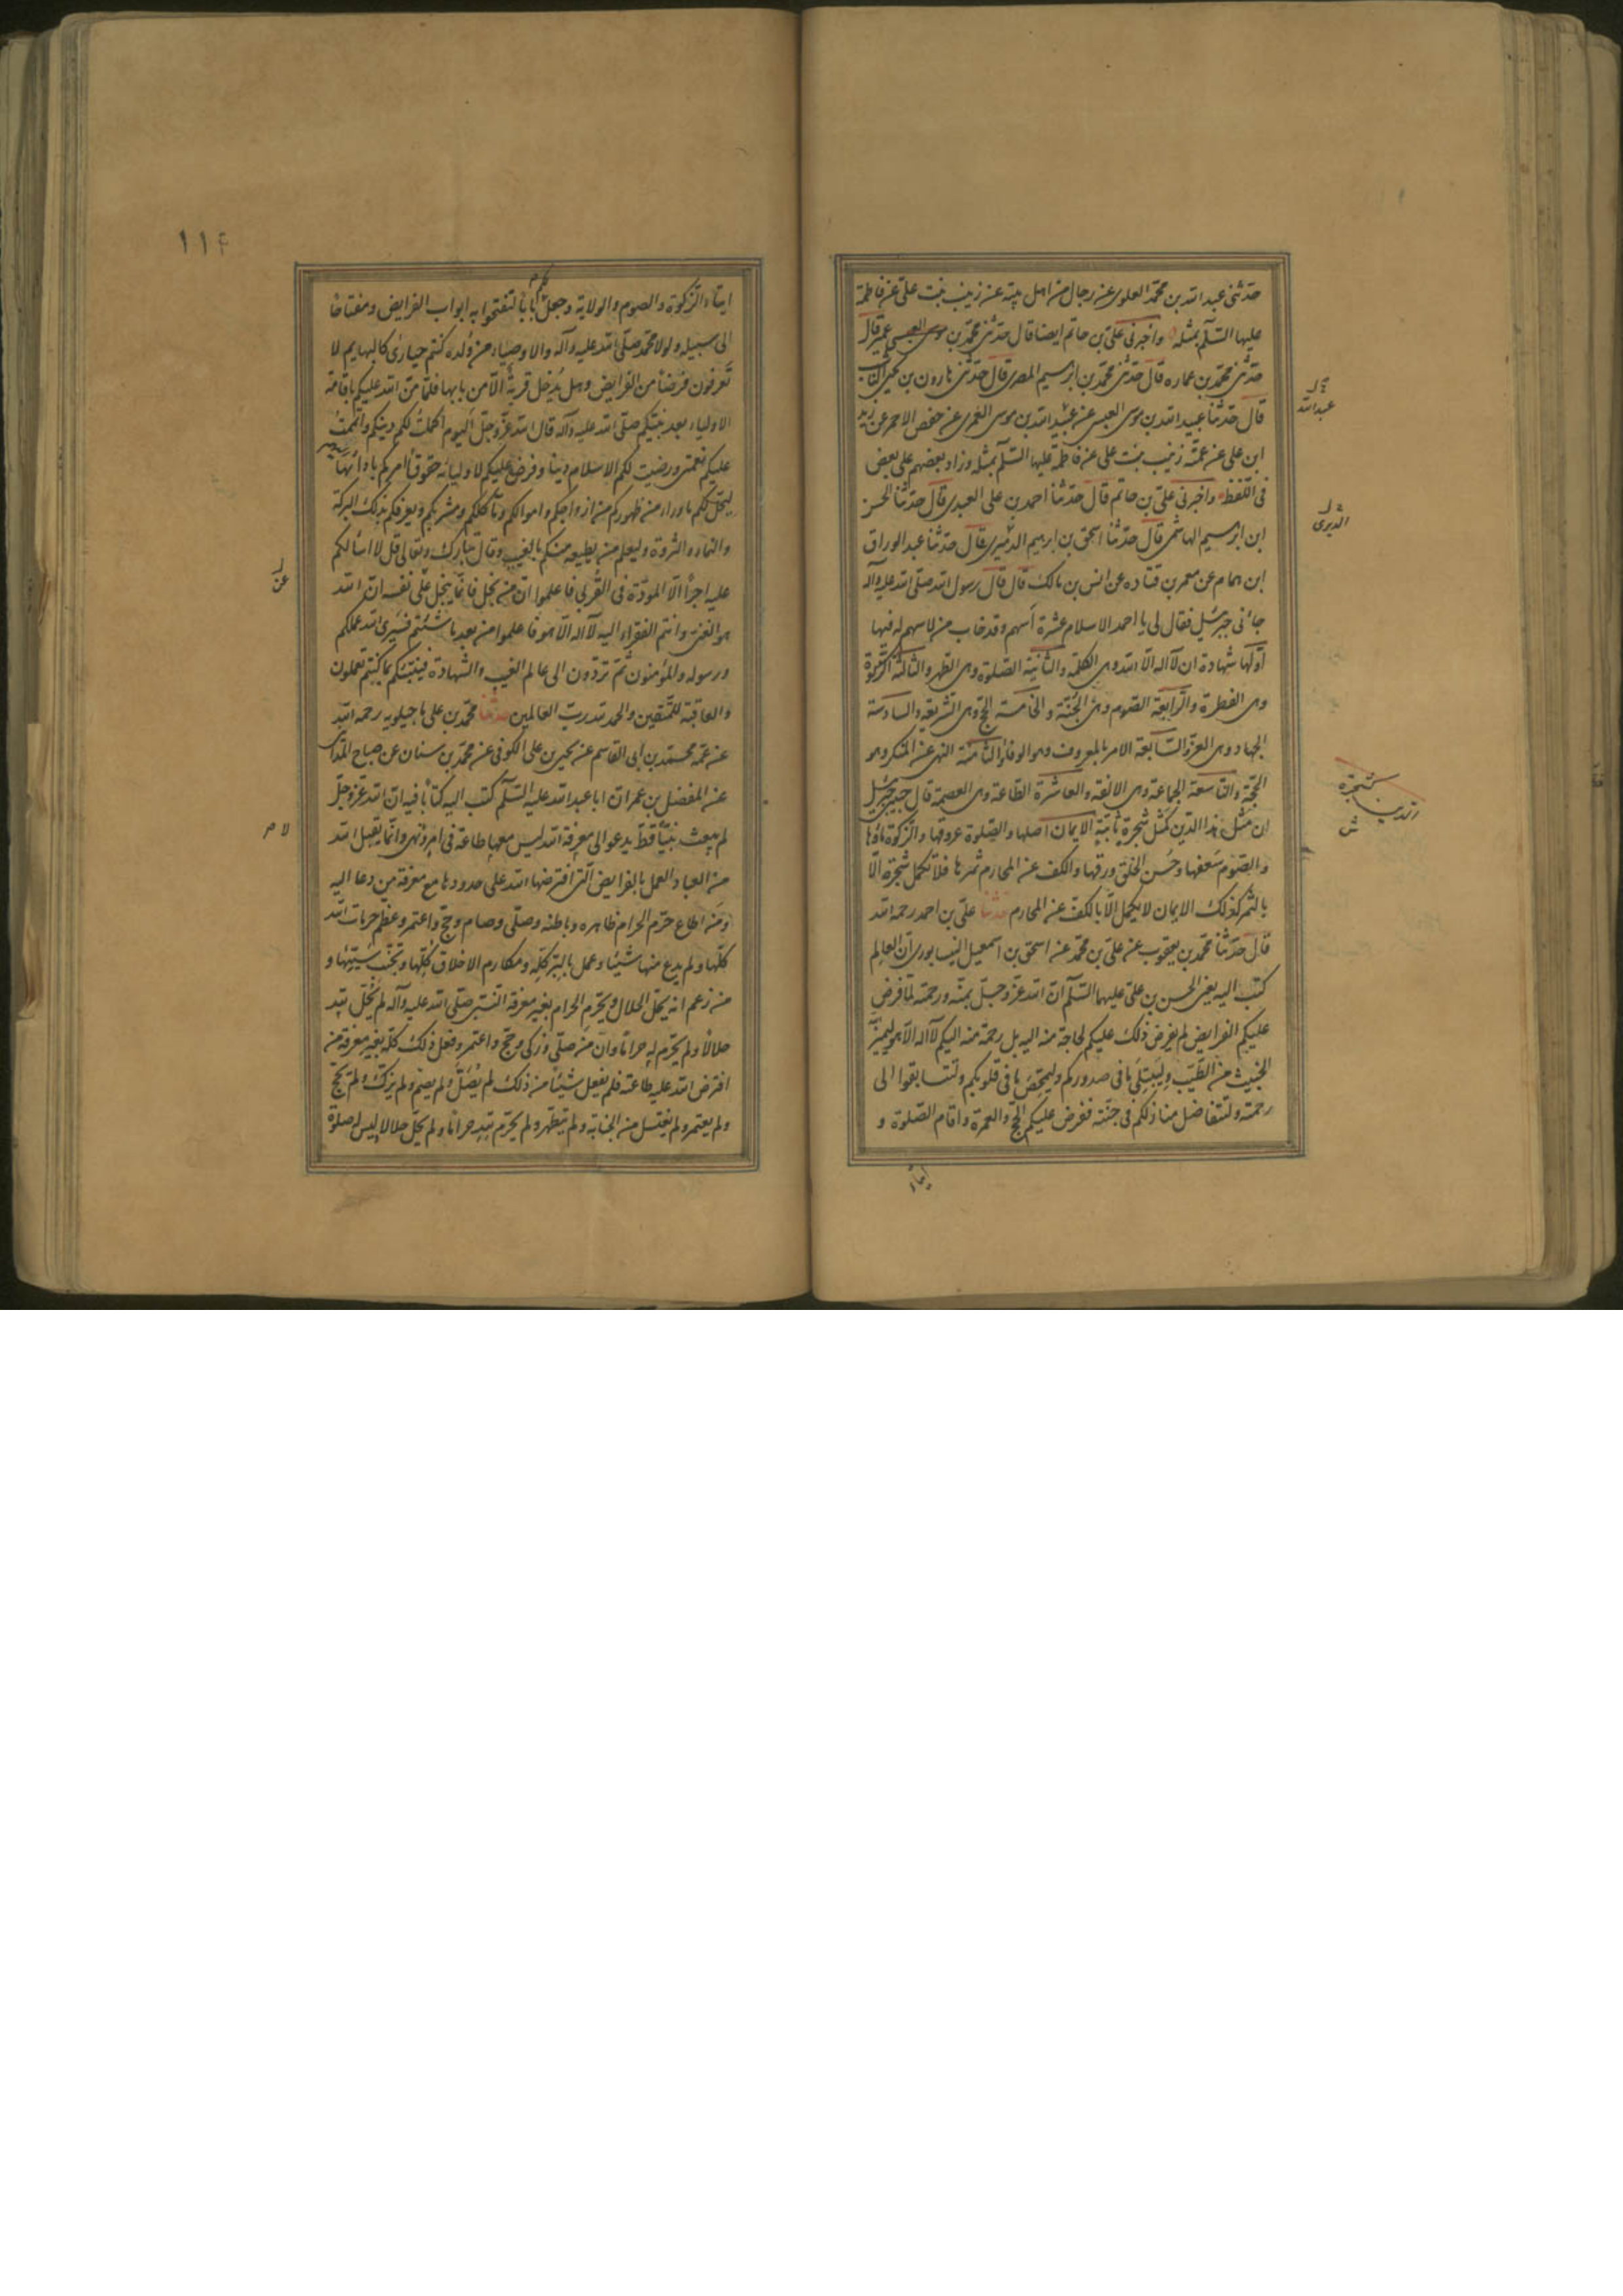 حدثنى عبد الله بن محمد العلوى عن رجال من اهل بيته عن زينب بنت على عن فاطمة
عليها السلام بمثله واخبرنى على بن حاتم ايضا قال حدثنى محمد بن موسى العبسى عمير قال
حدثنى محمد بن عماره قال حدثنى محمد بن ابرهيم المصرى قال حدثنى هارون بن يحيى الناشب
قال حدثنا عبيد الله بن موسى العبسى عن عبيد الله بن موسى العمرى عن حفص الاحمر عن زيد
ابن على عن عمته زينب بنت على عن فاطمة عليها السلام بمثله وزاد بعضهم على بعض
فى اللفظ واخبرنى على بن حاتم قال حدثنا احمد بن على العبدى قال حدثنا الحسن
ابن ابرهيم الهاشمى قال حدثنا اسحق بن ابرهيم الدبيرى قال حدثنا عبد الوراق
ابن همام عن معمر بن قتاده عن انس بن مالك قال قال رسول الله صلى الله عليه وآله
جاءنى جبرئيل فقال لى يا احمد الاسلام عشرة أسهم وقد خاب من لا سهم له فيها
أولها شهادة ان لا اله الا الله وهى الكلمة والثانية الصلوة وهى الطهر والثالثة الزكوة
وهى الفطرة والرابعة الصوم وهى الجنة والخامسة الحج وهى الشريعة والسادسة
الجهاد وهى العز والسابعة الامر بالمعروف وهو الوفاء والثامنة النهى عن المنكر وهو
الحجة والتاسعة الجماعة وهى الالفة والعاشرة الطاعة وهى العصمة قال حبيبى جبرئيل
ان مثل هذا الدين كمثل شجرة ثابتة الايمان اصلها والصلوة عروقها والزكوة ماؤها
والصوم سعفها وحسن الخلق ورقها والكف عن المحارم ثمرها فلا تكمل شجرة الا
بالثمر كذلك الايمان لا يكمل الا بالكف عن المحارم حدثنا على بن احمد رحمه الله
قال حدثنا محمد بن يعقوب عن على بن محمد عن اسحق بن اسمعيل النيسابورى ان العالم
كتب اليه يعنى الحسن بن على عليهما السلام ان الله عز وجل بمنه ورحمته لما فرض
عليكم الفرايض لم يفرض ذلك عليكم لحاجة منه اليه بل رحمة منه اليكم لا اله الا هو ليميز
الخبيث من الطيب وليبتلى ما فى صدوركم وليمحص ما فى قلوبكم ولتتسابقوا الى
رحمته ولتتفاضل منازلكم فى جنته ففرض عليكم الحج والعمرة واقام الصلوة و
ايتاء
عبد الله
الدبرى
كشجرة
الدين
١١٤
ايتاء الزكوة والصوم والولاية وجعل لكم بابا لتفتحوا به ابواب الفرايض ومفتاحا
الى سبيله ولولا محمد صلى الله عليه وآله والاوصياء من ولده كنتم حيارى كالبهايم لا
تعرفون فرضا من الفرايض وهل يدخل قرية الا من بابها فلما من الله عليكم باقامة
الاولياء بعد نبيكم صلى الله عليه وآله قال الله عز وجل اليوم اكملت لكم دينكم واتممت
عليكم نعمتى ورضيت لكم الاسلام دينا وفرض عليكم لاوليائه حقوقا امركم بادائها
ليحل لكم ما وراء ظهوركم من ازواجكم واموالكم ومأكلكم ومشربكم ويعرفكم بذلك البركة
والنماء والثروة وليعلم من يطيعه منكم بالغيب وقال تبارك وتعالى قل لا اسألكم
عليه اجرا الا المودة فى القربى فاعلموا ان من بخل فانما يبخل على نفسه ان الله
هو الغنى وانتم الفقراء اليه لا اله الا هو فاعلموا من بعد ما شئتم فسيرى الله عملكم
ورسوله والمؤمنون ثم تردون الى عالم الغيب والشهادة فينبئكم بما كنتم تعملون
والعاقبة للمتقين والحمد لله رب العالمين حدثنا محمد بن على ماجيلويه رحمه الله
عن عمه محمد بن ابى القاسم عن يحيى بن على الكوفى عن محمد بن سنان عن صباح المدائنى
عن المفضل بن عمر ان ابا عبد الله عليه السلام كتب اليه كتابا فيه ان الله عز وجل
لم يبعث نبيا قط يدعو الى معرفة الله ليس معها طاعة فى امر ونهى وانما يقبل الله
من العباد العمل بالفرايض التى افترضها الله على حدودها مع معرفة من دعا اليه
ومن اطاع حرم الحرام ظاهره وباطنه وصلى وصام وحج واعتمر وعظم حرمات الله
كلها ولم يدع منها شيئا وعمل بالبر كله ومكارم الاخلاق كلها وتجنب سيئها و
من زعم انه يحل الحلال ويحرم الحرام بغير معرفة النبى صلى الله عليه وآله لم يحل لله
حلالا ولم يحرم له حراما وان من صلى وزكى وحج واعتمر وفعل ذلك كله بغير معرفة من
افترض الله عليه طاعته فلم يفعل شيئا من ذلك لم يصل ولم يصم ولم يزك ولم يحج
ولم يعتمر ولم يغتسل من الجنابة ولم يتطهر ولم يحرم لله حراما ولم يحل حلالا ليس له صلوة
عن